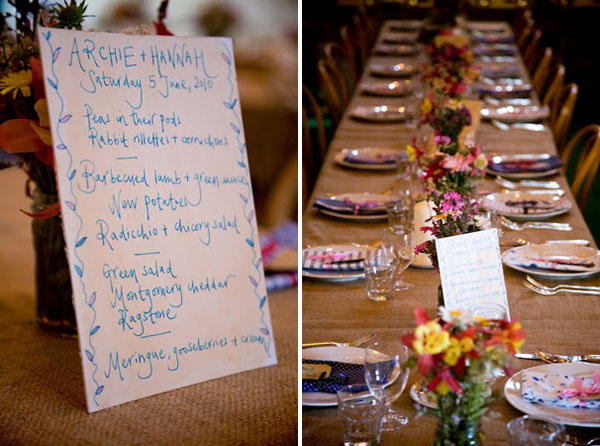 ARCHIE + HANNAH
Saturday 5 June, 2010
Peas in their pods
Rabbit rillettes + cornichons
Barbecued lamb + green sauce
New potatoes
Radicchio + chicory salad
Green salad
Montgomery cheddar
Ragstone
Meringue, gooseberries + cream